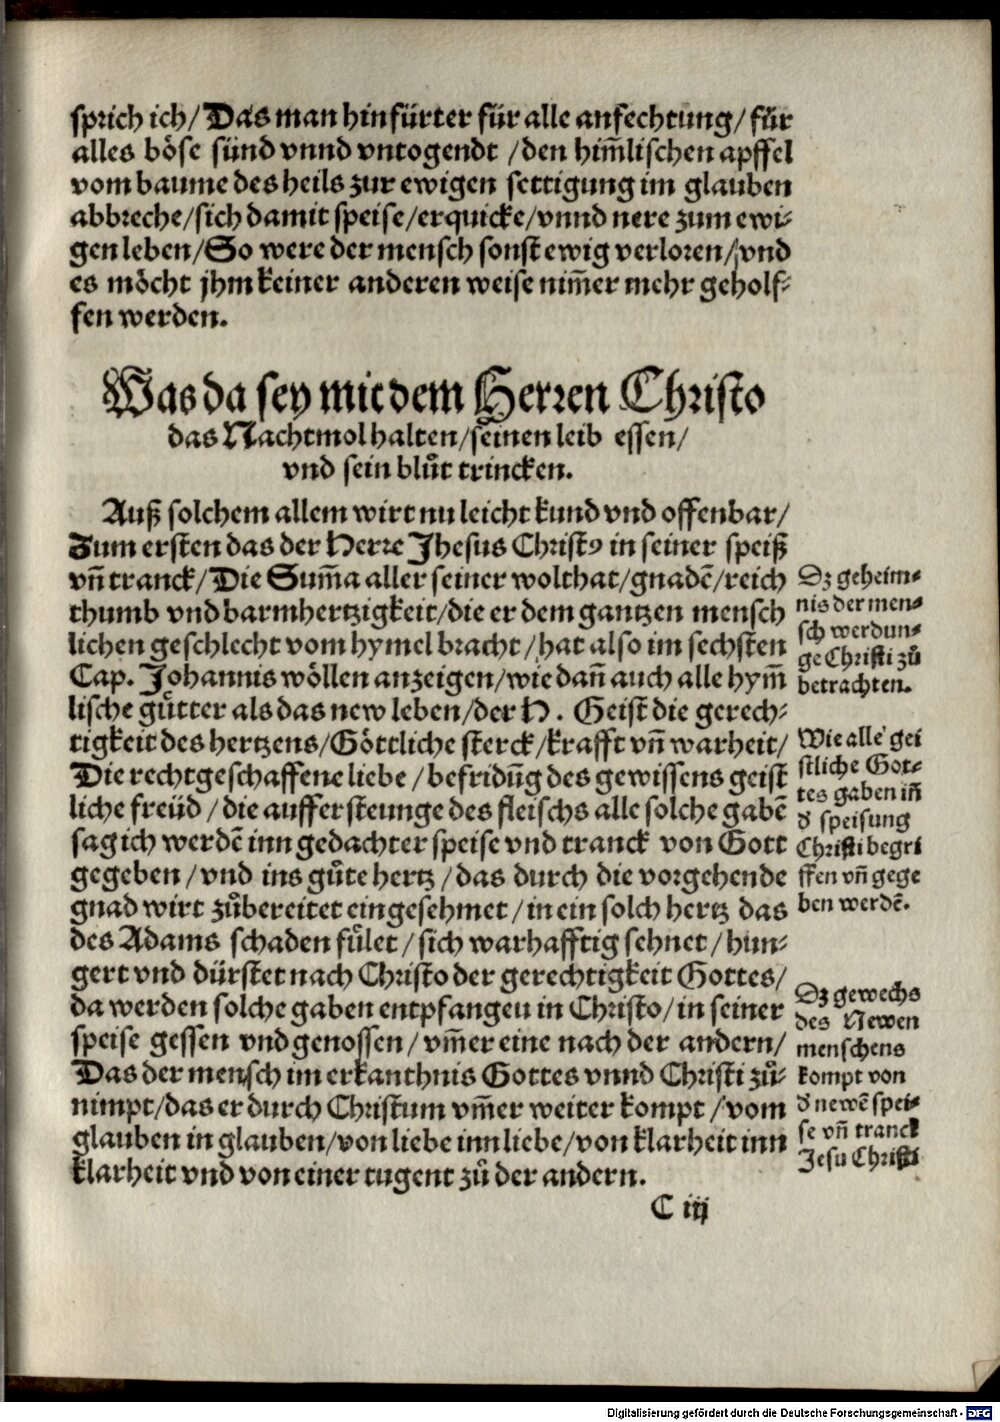 sprich ich/ Das man hinfürter für alle anfechtung/ für
alles böse sünd vnnd vntogendt /den him̄lischen apffel
vom baume des heils zur ewigen settigung im glauben
abbreche/sich damit speise/erquicke/vnnd nere zum ewi⸗
gen leben/So were der mensch sonst ewig verloren/vnd
es möcht jhm keiner anderen weise nim̄er mehr geholf⸗
fen werden.
Was da sey mit dem Herren Christo
das Nachtmol halten/seinen leib essen/
vnd sein blůt trincken.
Auß solchem allem wirt nu leicht kund vnd offenbar/
Zum ersten das der Herre Jhesus Christꝰ in seiner speiß
vn̄ tranck/Die Sum̄a aller seiner wolthat/gnadē/reich
thumb vnd barmhertzigkeit/die er dem gantzen mensch
lichen geschlecht vom hymel bracht/hat also im sechsten
Cap. Johannis wöllen anzeigen/wie dan̄ auch alle hym̄
lische gütter als das new leben/der H. Geist die gerech⸗
tigkeit des hertzens/Göttliche sterck/krafft vn̄ warheit/
Die rechtgeschaffene liebe/befridūg des gewissens geist
liche freüd/die auffersteunge des fleischs alle solche gabē
sag ich werdē inn gedachter speise vnd tranck von Gott
gegeben/vnd ins gůte hertz/das durch die vorgehende
gnad wirt zůbereitet eingesehmet/in ein solch hertz das
des Adams schaden fůlet/sich warhafftig sehnet/hun⸗
gert vnd dürstet nach Christo der gerechtigkeit Gottes/
da werden solche gaben entpfangen in Christo/in seiner
speise gessen vnd genossen/vm̄er eine nach der andern/
Das der mensch im erkanthnis Gottes vnnd Christi zů⸗
nimpt/das er durch Christum vm̄er weiter kompt/vom
glauben in glauben/von liebe inn liebe/von klarheit inn
klarheit vnd von einer tugent zů der andern.
C iij
Dz geheim⸗
nis der men⸗
sch werdun⸗
ge Christi zů
betrachten.
Wie alle gei
stliche Got⸗
tes gaben in̄
d speisung
Christi begri
ffen vn̄ gege
ben werdē.
Dz gewechs
des Newen
menschens
kompt von
d newē spei⸗
se vn̄ tranck
Jesu Christi
Digitalisierung gefördert durch die Deutsche Forschungsgemeinschaft - DFG